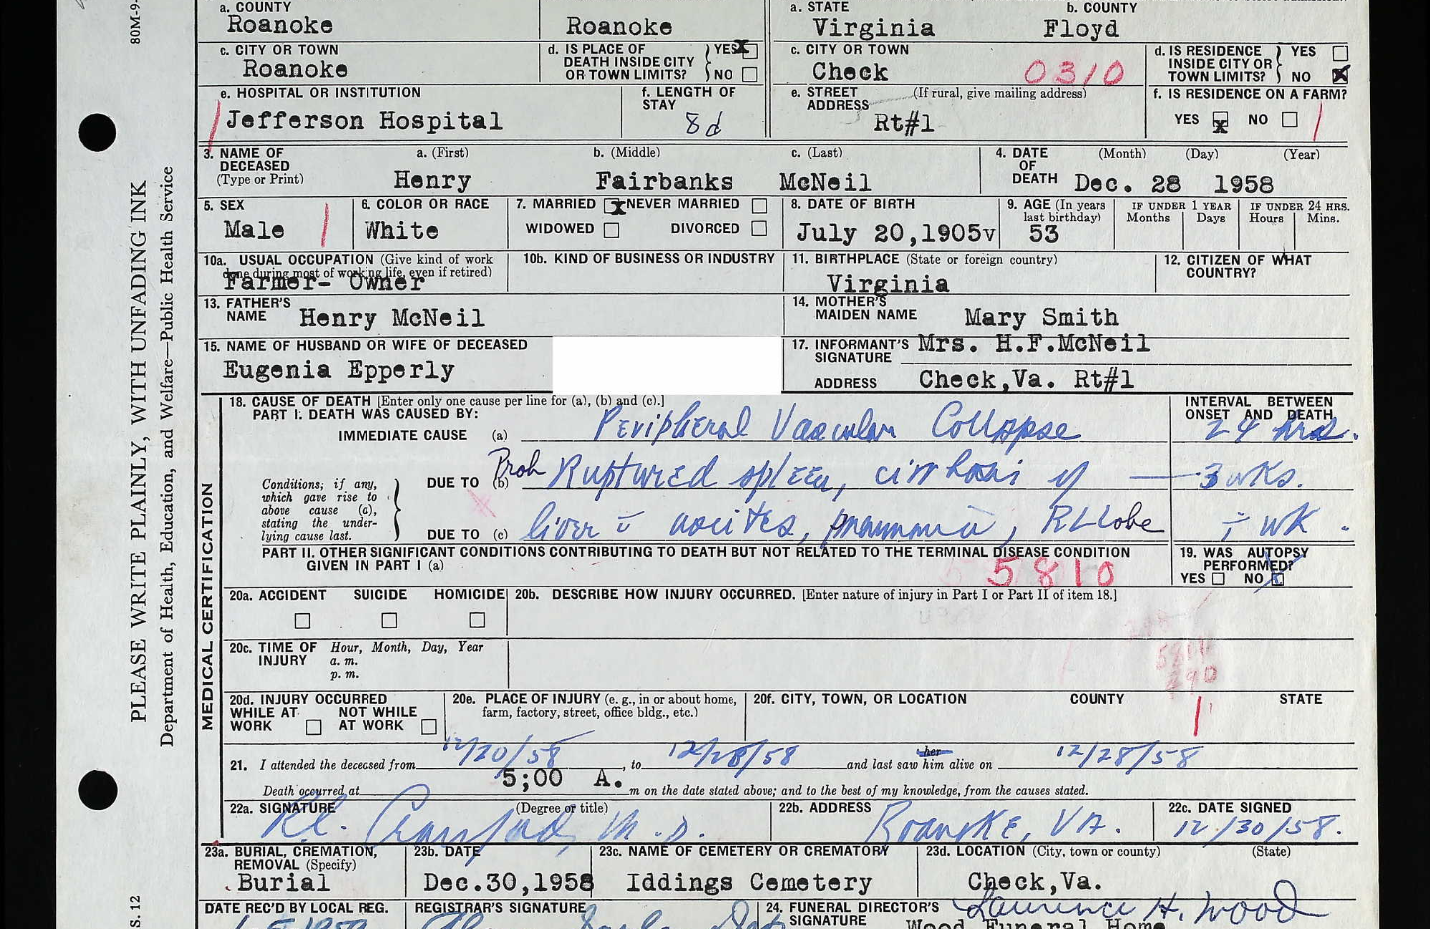 a. COUNTY
Roanoke
Roanoke
a. STATE
Virginia
b. COUNTY
Floyd
80M-9
c. CITY OR TOWN
Roanoke
d. IS PLACE OF DEATH INSIDE CITY OR TOWN LIMITS? YES X NO
c. CITY OR TOWN
Check
0310
d. IS RESIDENCE INSIDE CITY OR TOWN LIMITS? YES NO X
e. HOSPITAL OR INSTITUTION
Jefferson Hospital
f. LENGTH OF STAY
8d
e. STREET ADDRESS (If rural, give mailing address)
Rt#1
f. IS RESIDENCE ON A FARM?
YES X NO
3. NAME OF DECEASED (Type or Print)
a. (First) b. (Middle) c. (Last)
Henry Fairbanks McNeil
4. DATE OF DEATH (Month) (Day) (Year)
Dec. 28 1958
5. SEX
Male
6. COLOR OR RACE
White
7. MARRIED X NEVER MARRIED
WIDOWED DIVORCED
8. DATE OF BIRTH
July 20,1905v
9. AGE (In years last birthday)
53
IF UNDER 1 YEAR
Months Days
IF UNDER 24 HRS.
Hours Mins.
10a. USUAL OCCUPATION (Give kind of work done during most of working life, even if retired)
Farmer- Owner
10b. KIND OF BUSINESS OR INDUSTRY
11. BIRTHPLACE (State or foreign country)
Virginia
12. CITIZEN OF WHAT COUNTRY?
13. FATHER'S NAME Henry McNeil
14. MOTHER'S MAIDEN NAME Mary Smith
15. NAME OF HUSBAND OR WIFE OF DECEASED
Eugenia Epperly
17. INFORMANT'S SIGNATURE Mrs. H.F.McNeil
ADDRESS Check,Va. Rt#1
18. CAUSE OF DEATH [Enter only one cause per line for (a), (b) and (c).]
PART I. DEATH WAS CAUSED BY:
IMMEDIATE CAUSE (a) Peripheral Vascular Collapse
INTERVAL BETWEEN ONSET AND DEATH
24 hrs.
Conditions, if any, which gave rise to above cause (a), stating the underlying cause last.
DUE TO (b) Prob Ruptured spleen, cirrhosis of
3 wks.
DUE TO (c) liver c̄ ascites, pneumonia, RLLobe
wk.
PART II. OTHER SIGNIFICANT CONDITIONS CONTRIBUTING TO DEATH BUT NOT RELATED TO THE TERMINAL DISEASE CONDITION GIVEN IN PART I (a)
5810
19. WAS AUTOPSY PERFORMED?
YES NO X
MEDICAL CERTIFICATION
20a. ACCIDENT SUICIDE HOMICIDE
20b. DESCRIBE HOW INJURY OCCURRED. [Enter nature of injury in Part I or Part II of item 18.]
20c. TIME OF INJURY Hour, Month, Day, Year
a. m.
p. m.
20d. INJURY OCCURRED
WHILE AT WORK NOT WHILE AT WORK
20e. PLACE OF INJURY (e. g., in or about home, farm, factory, street, office bldg., etc.)
20f. CITY, TOWN, OR LOCATION COUNTY STATE
21. I attended the deceased from 12/20/58, to 12/28/58 and last saw her him alive on 12/28/58
Death occurred at 5;00 A. m on the date stated above; and to the best of my knowledge, from the causes stated.
22a. SIGNATURE (Degree or title)
Crawford, M.D.
22b. ADDRESS
Roanoke, VA.
22c. DATE SIGNED
12/30/58.
23a. BURIAL, CREMATION, REMOVAL (Specify)
Burial
23b. DATE
Dec.30,1958
23c. NAME OF CEMETERY OR CREMATORY
Iddings Cemetery
23d. LOCATION (City, town or county) (State)
Check,Va.
DATE REC'D BY LOCAL REG.
REGISTRAR'S SIGNATURE
24. FUNERAL DIRECTOR'S SIGNATURE Laurence H. Wood
Wood Funeral Home
PLEASE WRITE PLAINLY, WITH UNFADING INK
Department of Health, Education, and Welfare—Public Health Service
S. 12